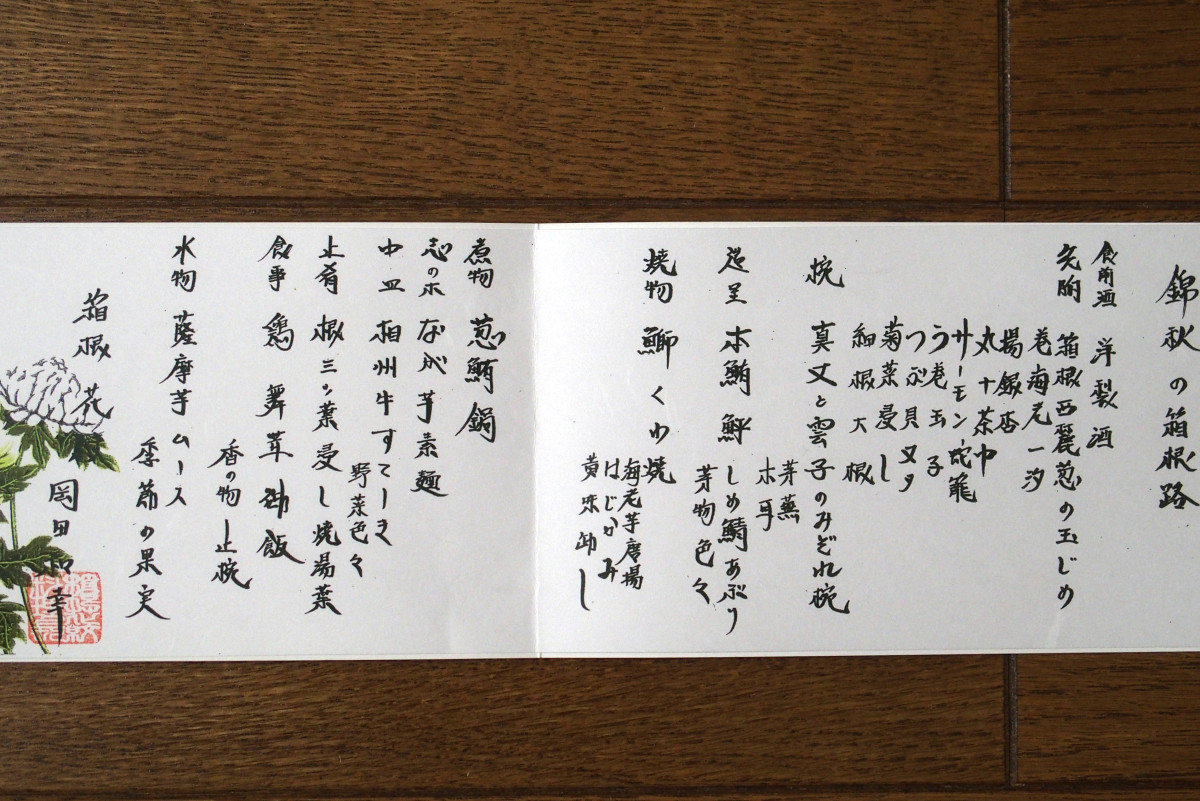 錦秋の箱根路
食前酒 洋製酒
先附 箱根西麗葱の玉じめ
巻海老一汐
揚銀杏
丸十茶巾
サーモン蛇籠
う巻玉子
つぶ貝ヌタ
菊菜浸し
細根大根
椀 真丈と雲子のみぞれ椀
芽蕪
木耳
造里 本鮪 鮃 しめ鯖あぶり
芽物色々
焼物 鰤くわ焼
海老芋唐揚
はじかみ
黄味卸し
煮物 葱鮪鍋
志のぎ なが芋素麺
中皿 相州牛すてーき
野菜色々
止肴 根三ツ葉浸し 焼湯葉
食事 鶏 舞茸 御飯
香の物 止椀
水物 薩摩芋ムース
季節の果実
箱根 花
岡田和幸